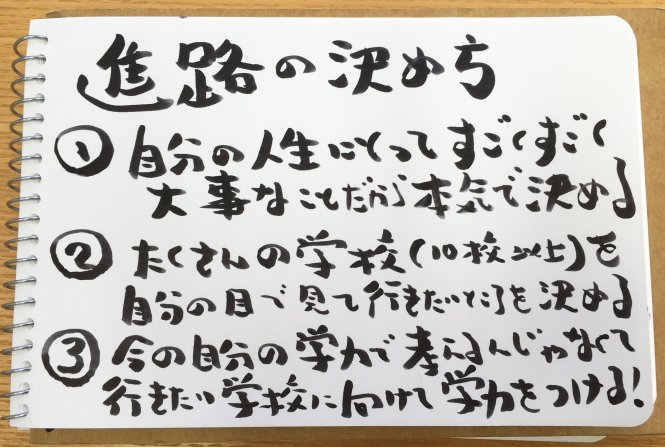 進路の決め方
① 自分の人生にとってすごくすごく
大事なことだから本気で決める
② たくさんの学校(10校以上)を
自分の目で見て行きたいところを決める
③ 今の自分の学力で考えるんじゃなくて
行きたい学校に向けて学力をつける!